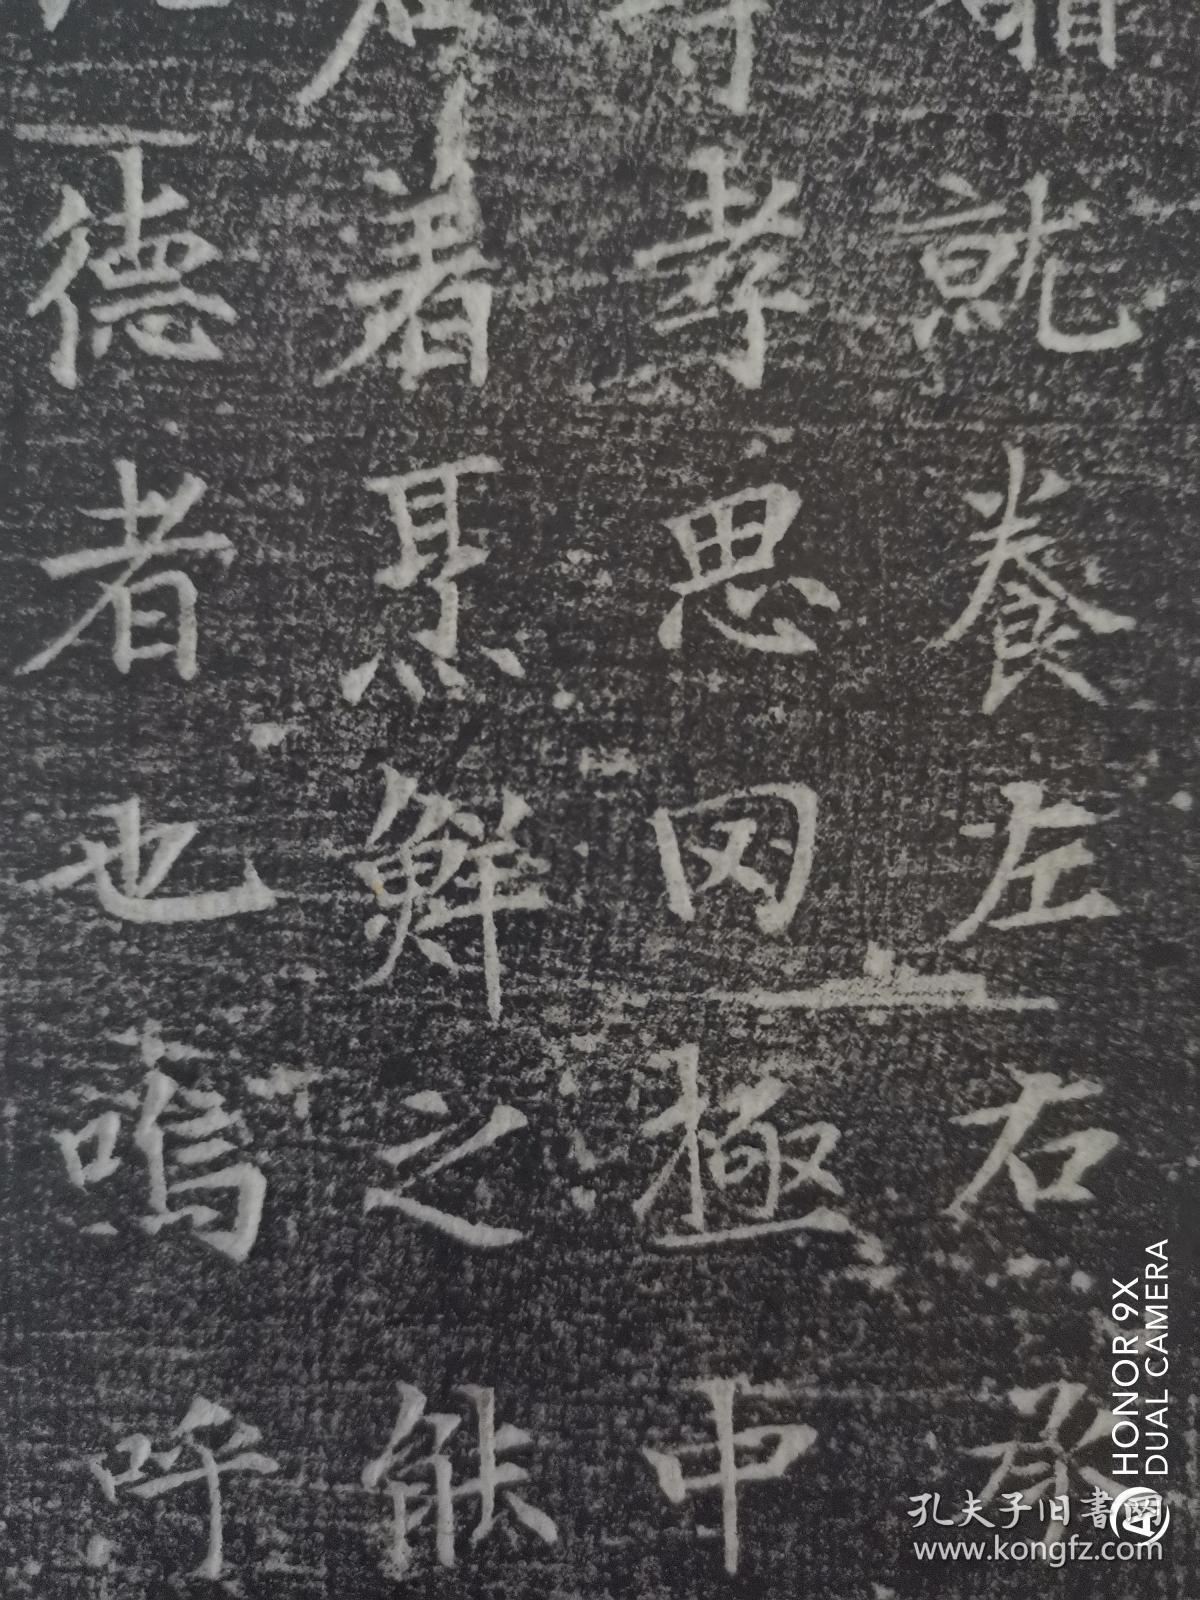 就養左右承
孝思罔極中
着焉鮮之能
德者也嗚呼
HONOR 9X
DUAL CAMERA
孔夫子旧書网
www.kongfz.com